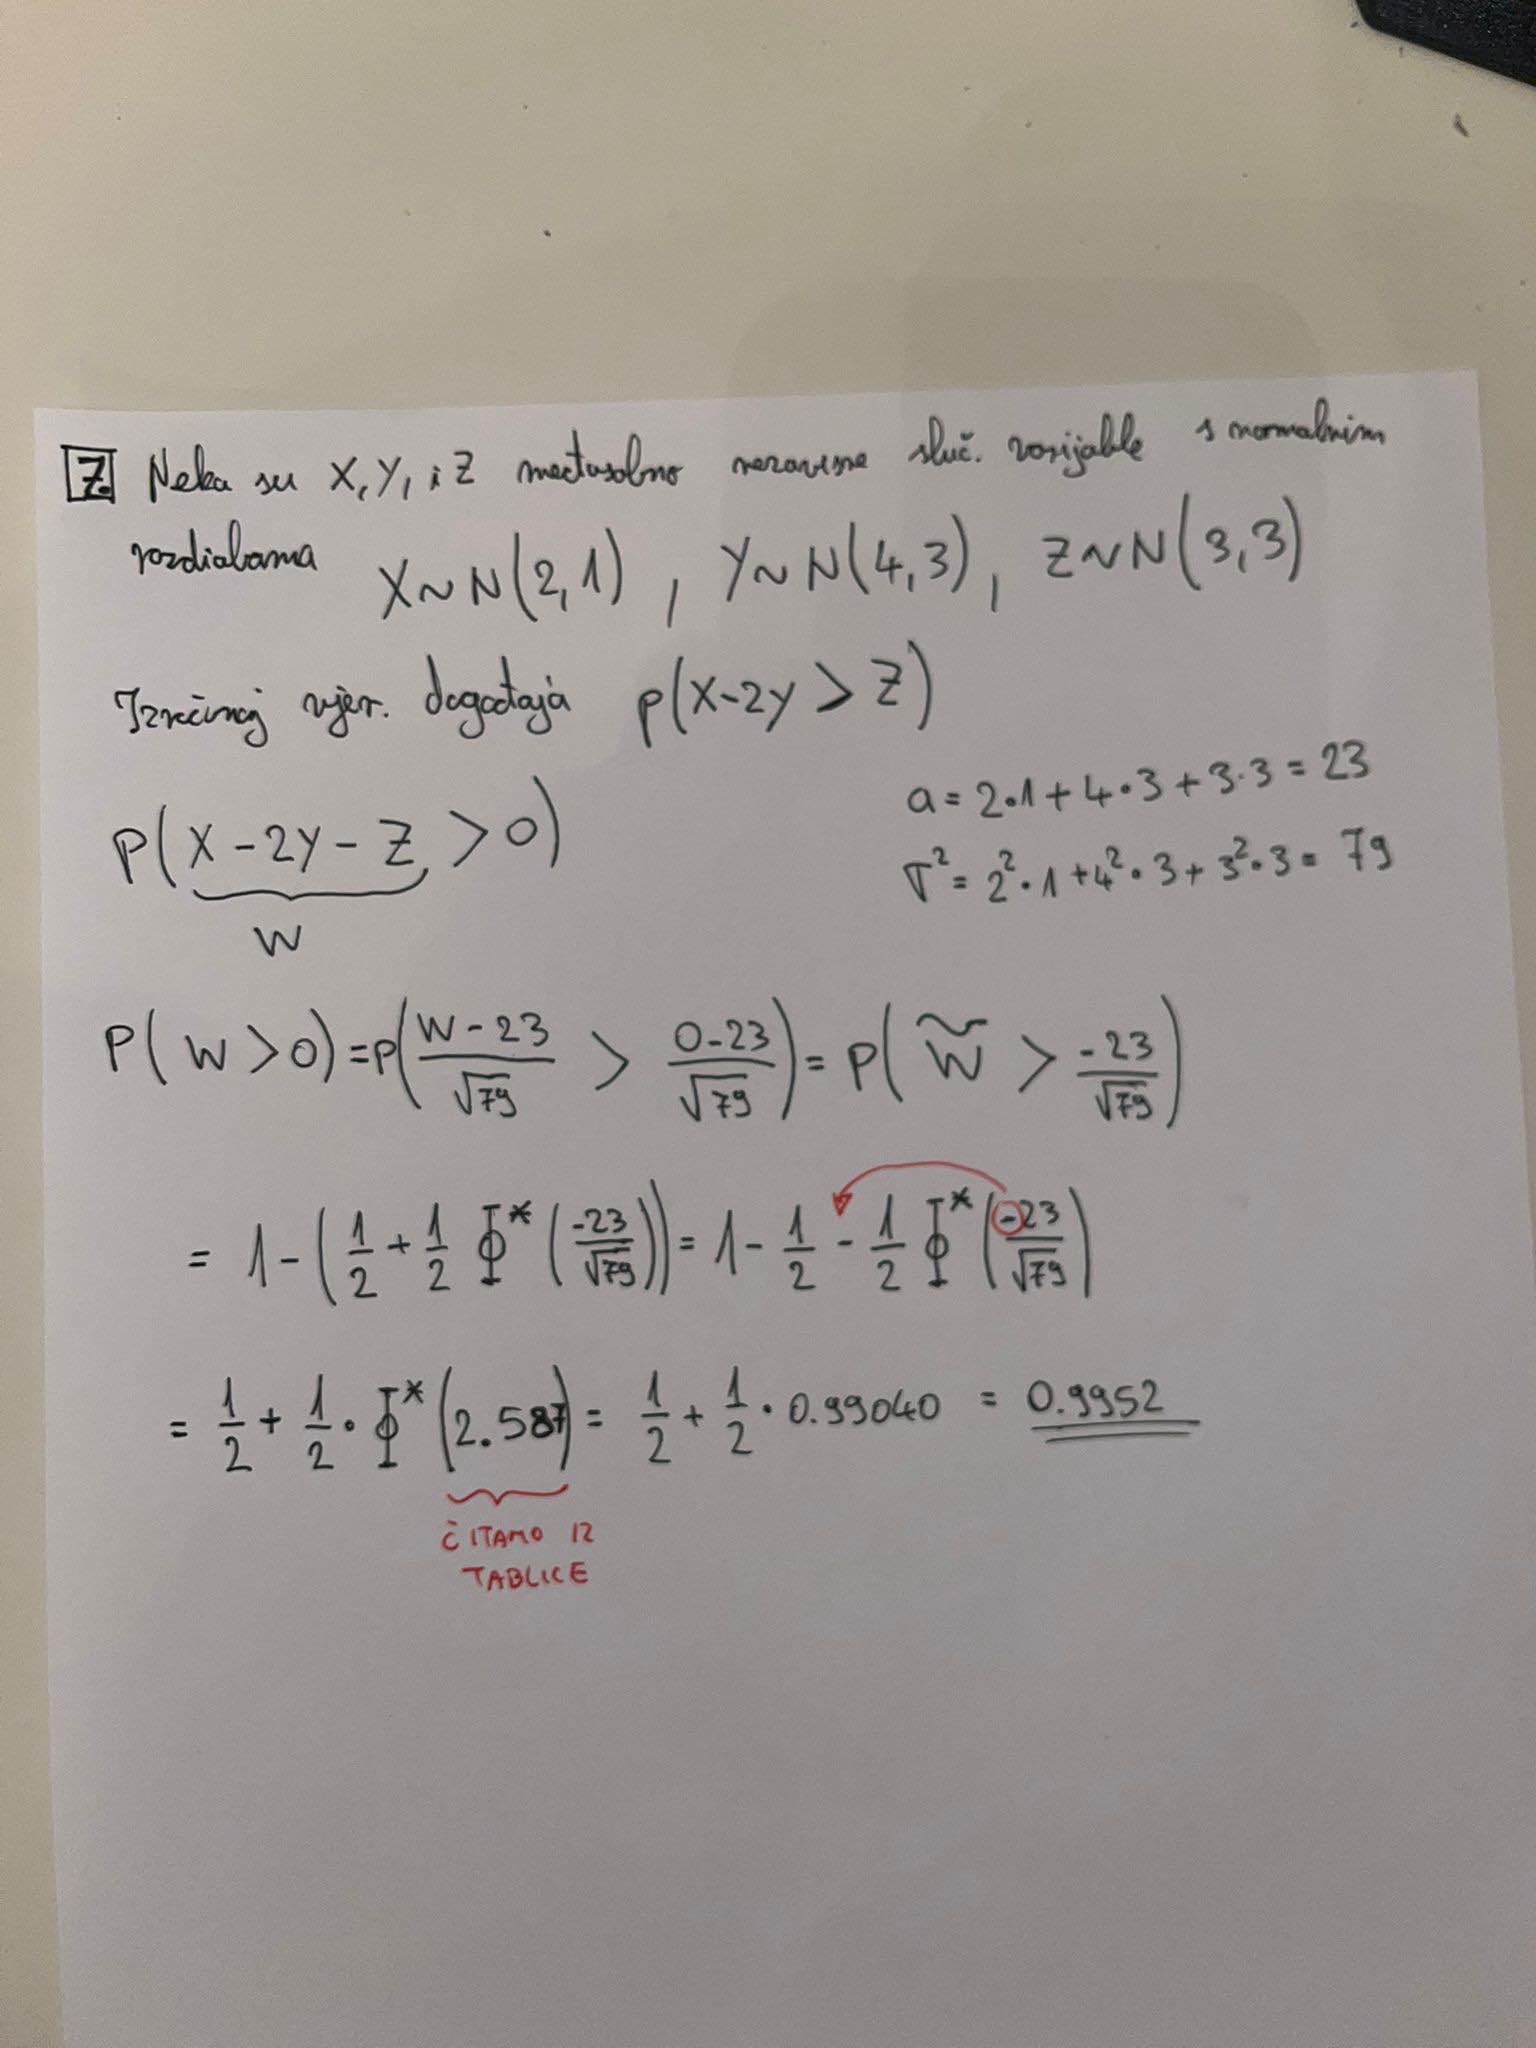 Z. Neka su X, Y, i Z međusobno nezavisne sluč. varijable s normalnim
razdiobama X~N(2,1), Y~N(4,3), Z~N(3,3)
Izračunaj vjer. događaja p(X-2Y > Z)
P(X-2Y-Z > 0)
a = 2·1 + 4·3 + 3·3 = 23
σ² = 2²·1 + 4²·3 + 3²·3 = 79
W
P(W > 0) = P((W-23)/√79 > (0-23)/√79) = P(W̃ > -23/√79)
= 1 - (1/2 + 1/2 Φ*(-23/√79)) = 1 - 1/2 - 1/2 Φ*(-23/√79)
= 1/2 + 1/2 · Φ*(2.587) = 1/2 + 1/2 · 0.99040 = 0.9952
ČITAMO IZ
TABLICE